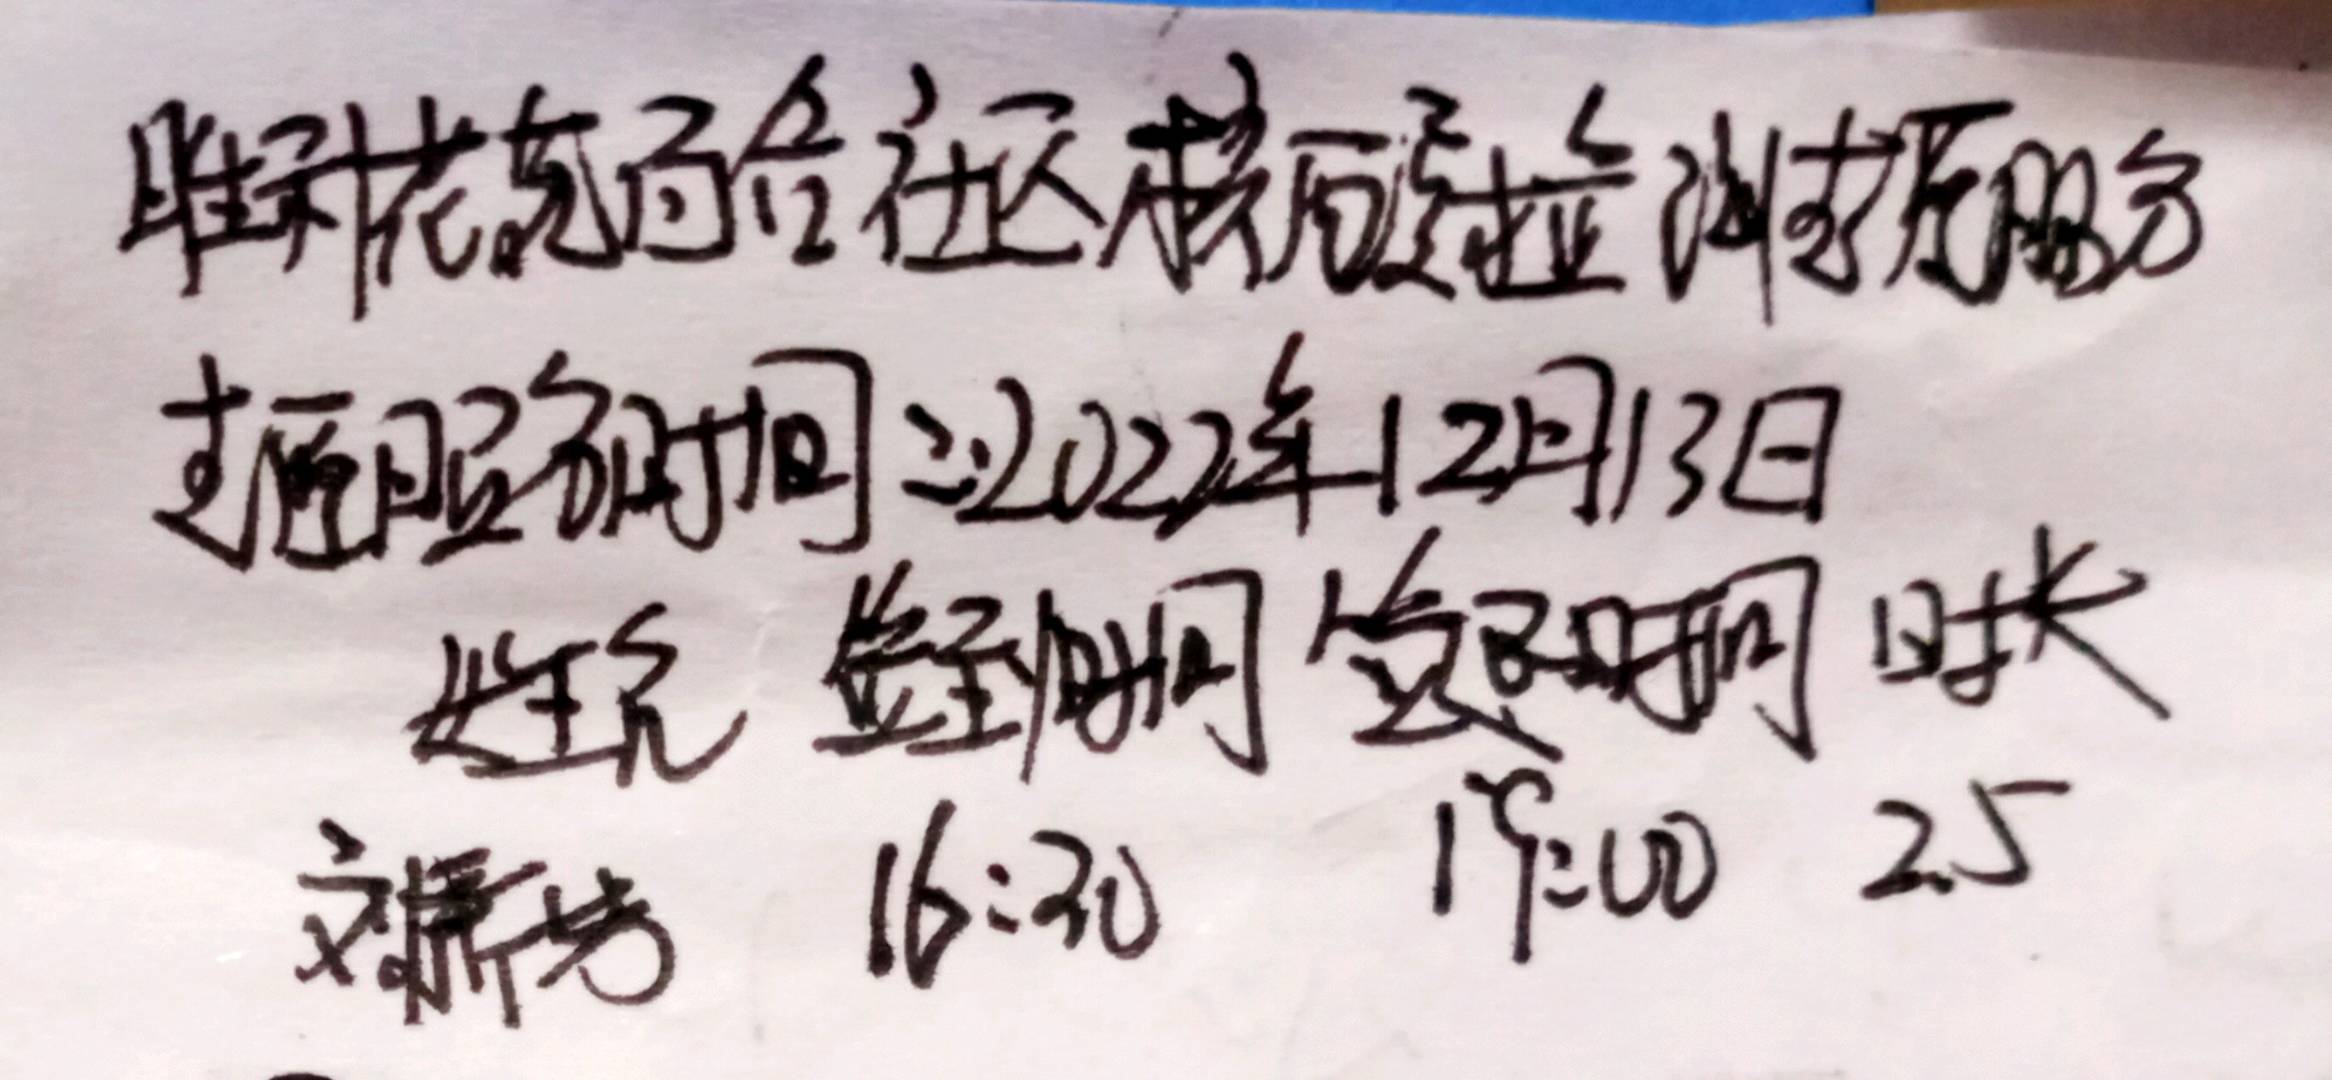 花苑百合社区核酸检测志愿服务
志愿服务时间:2022年12月13日
姓名 签到时间 签退时间 时长
刘 芳 16:30 19:00 2.5